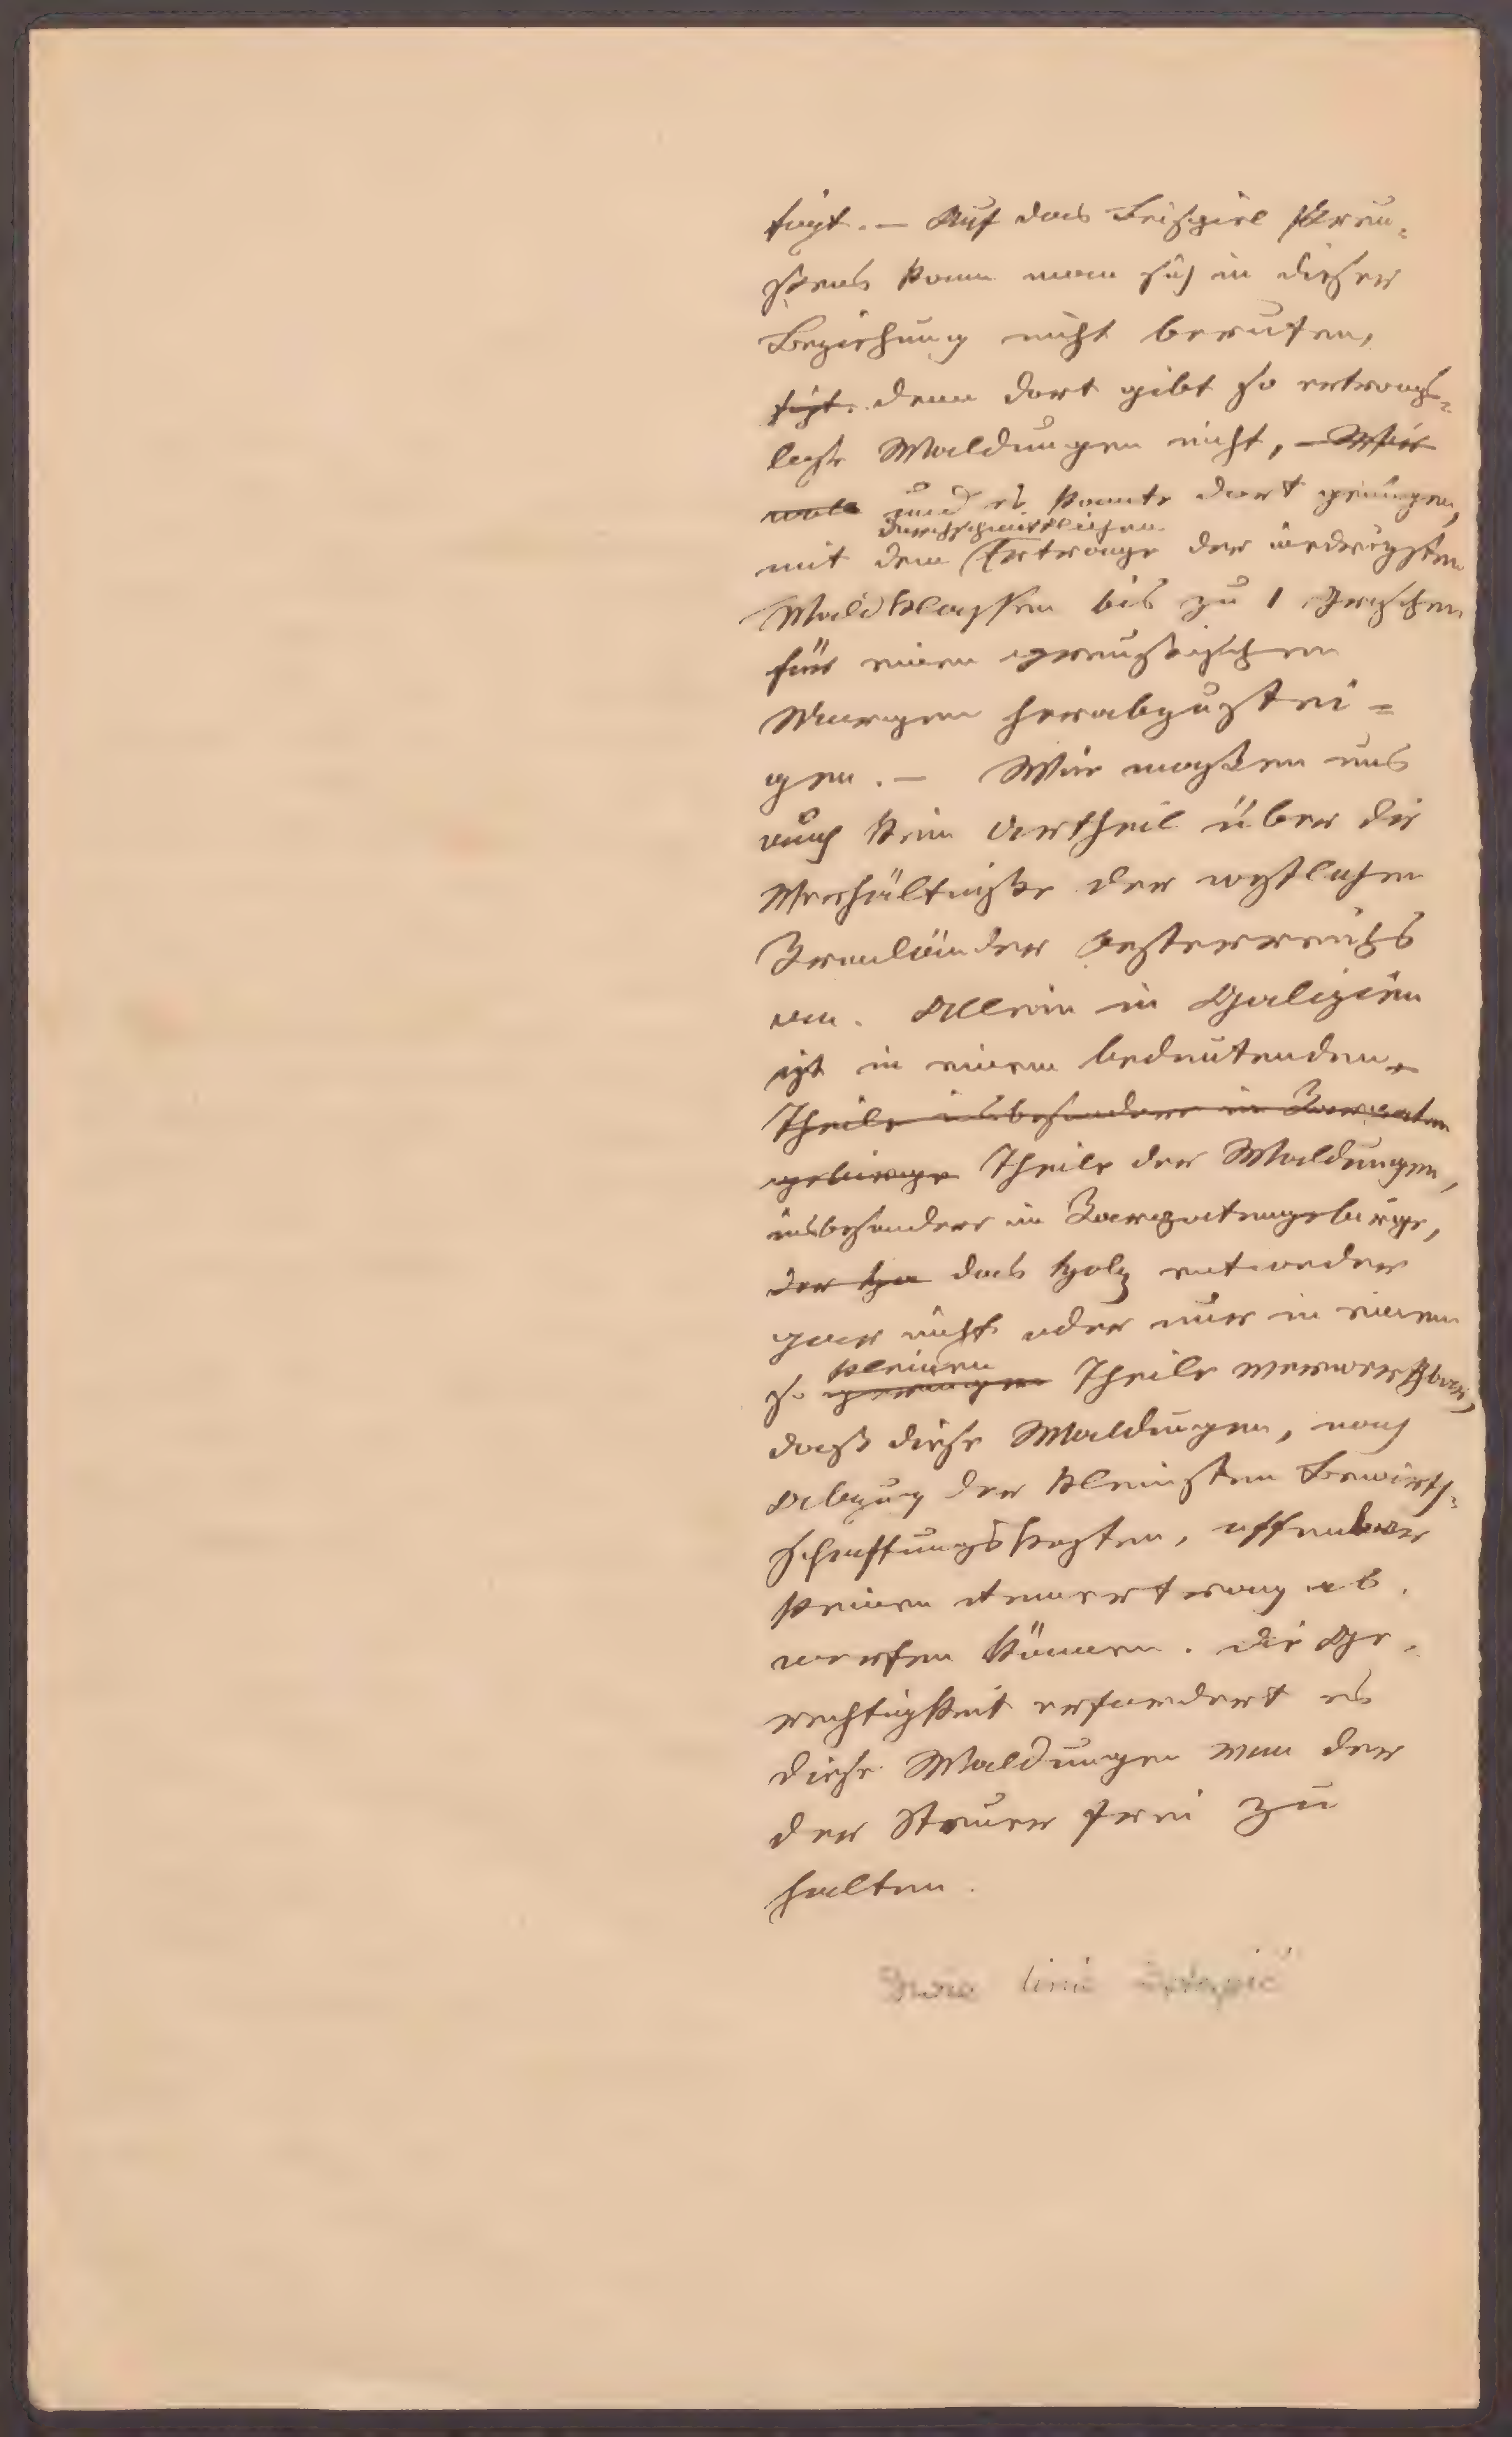 fügt. — Auf das Beispiel Preu-
ßens kann man sich in dieser
Beziehung nicht berufen,
denn dort gibt so ertrags-
lose Waldungen nicht, — Wir
und es konnte dort genügen,
durchschnittlichen
mit dem Ertrage der niedrigsten
Waldklassen bis zu 1 Groschen
für einen preußischen
Morgen herabzustei-
gen. — Wir maßen uns
auch kein Urtheil über die
Verhältniße der westlichen
Kronländer Oesterreichs
an. Allein in Galizien
ist in einem bedeutenden
Theile insbesondere in Karpaten
gebirge Theile der Waldungen,
insbesondere im Karpatengebirge,
das Holz entweder
gar nicht oder nur in einem
kleinen
so geringen Theile verwerthbar,
daß diese Waldungen, nach
Abzug der kleinsten Bewirth-
schaftungskosten, offenbar
keinen Reinertrag ab-
werfen können. Die Ge-
rechtigkeit erfordert es
diese Waldungen von der
der Steuer frei zu
halten.
linie